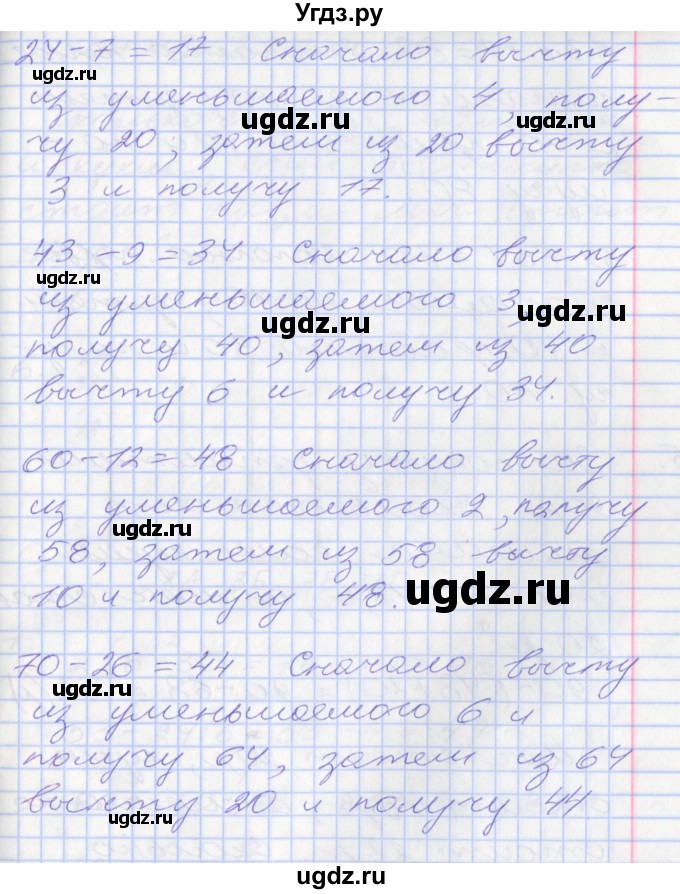 Угдз.ру
24-7=17 Сначало вычту
из уменьшаемого 4, полу-
чу 20, затем из 20 вычту
3 и получу 17.
43-9=34 Сначало вычту
из уменьшаемого 3,
получу 40, затем из 40
вычту 6 и получу 34.
60-12=48 Сначало вычту
из уменьшаемого 2, палучу
58, затем из 58 вычту
10 и получу 48.
70-26=44 Сначало вычту
из уменьшаемого 6 и
получу 64, затем из 64
вычту 20 и получу 44.
ugdz.ru
ugdz.ru
ugdz.ru
ugdz.ru
ugdz.ru
ugdz.ru
ugdz.ru
ugdz.ru
ugdz.ru
ugdz.ru
ugdz.ru